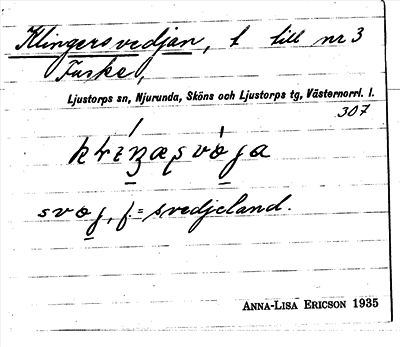 Klingersvedjan, t till nr 3
Fuske,
Ljustorps sn, Njurunda, Sköns och Ljustorps tg, Västernorrl. l.
307
svæj, f. = svedjeland.
ANNA-LISA ERICSON 1935